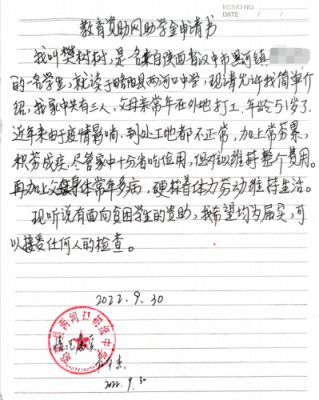 MEMO NO.
DATE / /
教育资助网助学金申请书
我叫樊树树,是一名来自陕西省汉中市黑河镇
的一名学生,就读于略阳县两河口中学,现请允许我简单介
绍,我家中共有三人,父母亲常年在外地打工,年龄51岁了
近年来由于疫情影响,到处工地都不正常,加上常劳累,
积劳成疾,尽管家中十分省吃俭用,但难以维持整个费用。
再加上父母身体常年多病,硬撑着体力劳动维持生活。
现听说有面向贫困学生的资助,我希望均为属实,可
以接受任何人的检查。
2022.9.30
2022.9.30